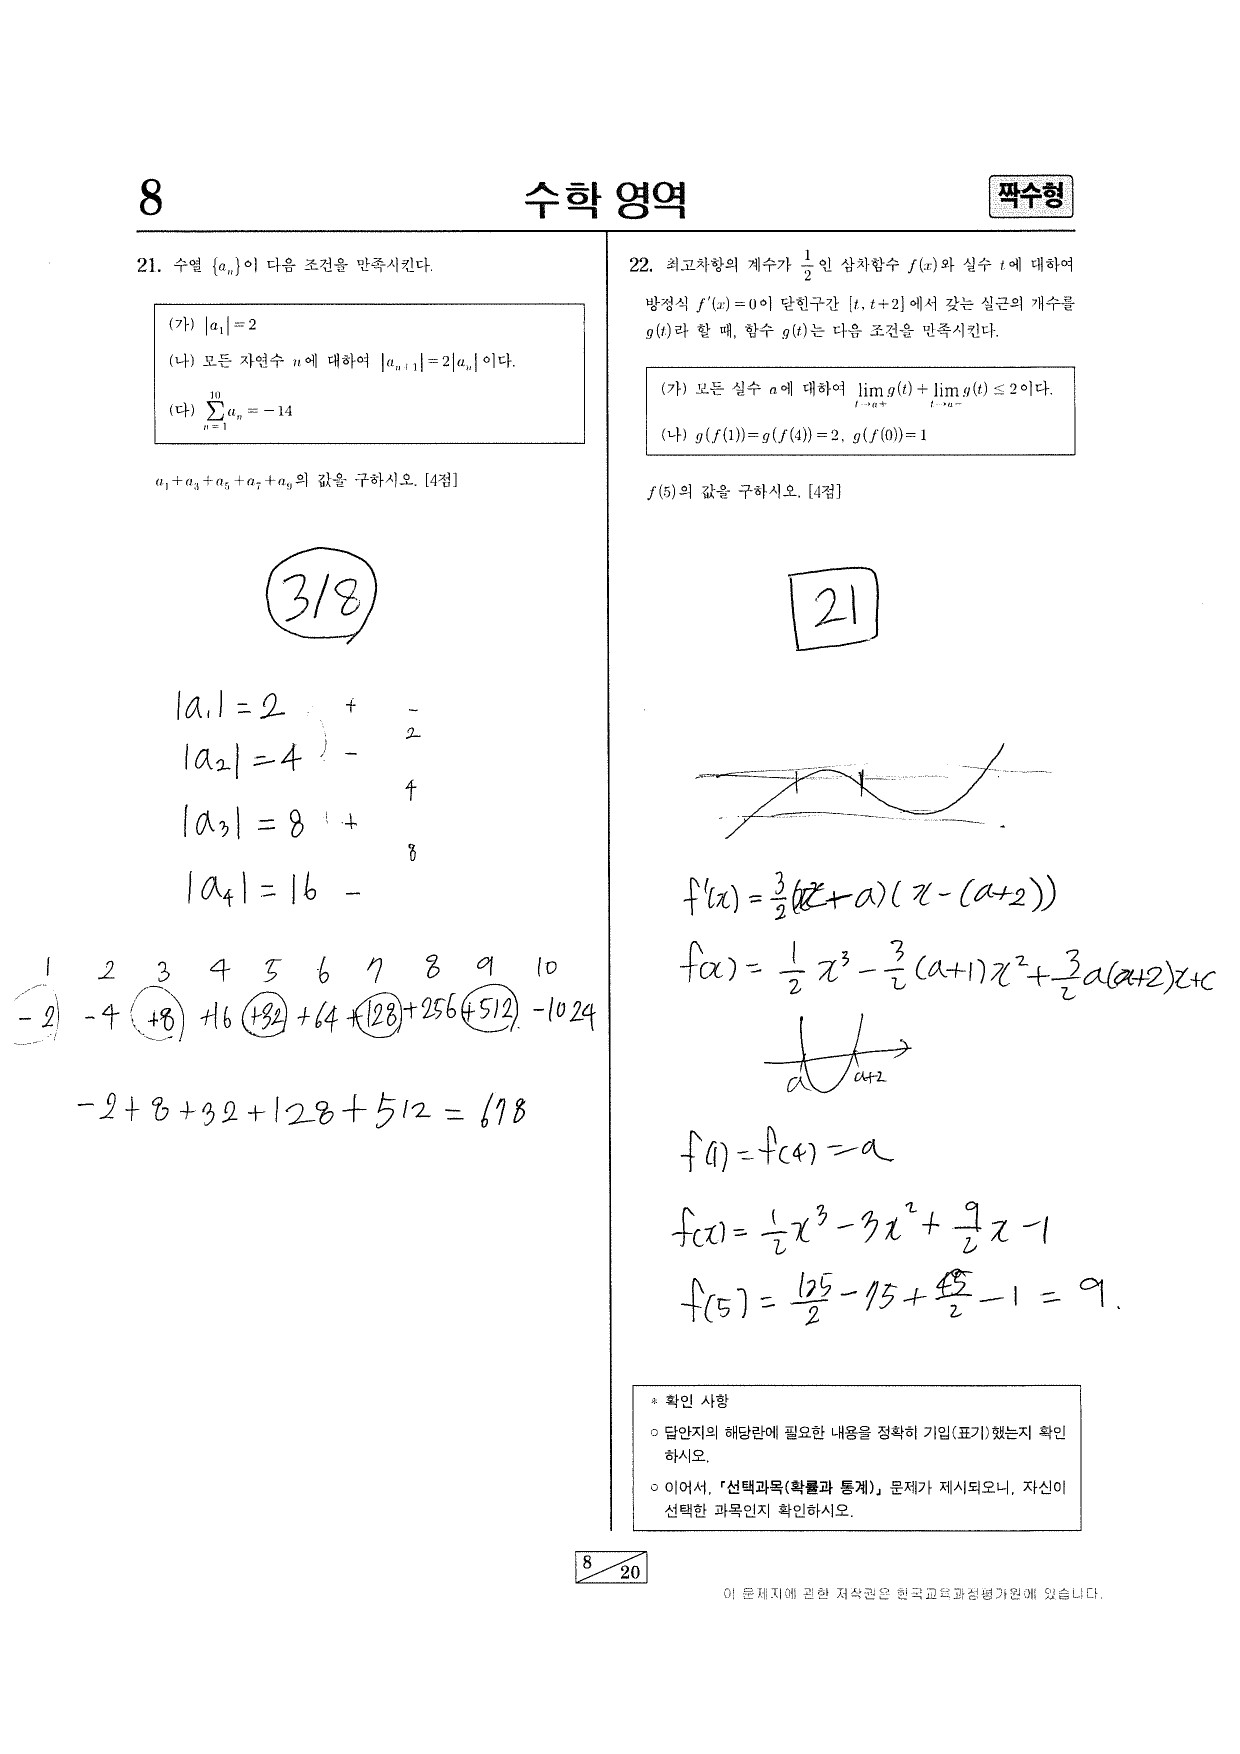 8
수학 영역
짝수형
21. 수열 {aₙ}이 다음 조건을 만족시킨다.
(가) |a₁| = 2
(나) 모든 자연수 n에 대하여 |aₙ₊₁| = 2|aₙ|이다.
(다) ∑ₙ₌₁¹⁰ aₙ = −14
a₁+a₃+a₅+a₇+a₉의 값을 구하시오. [4점]
318
|a₁| = 2 + −
2
|a₂| = 4 −
4
|a₃| = 8 +
8
|a₄| = 16 −
1 2 3 4 5 6 7 8 9 10
−2 −4 +8 +16 +32 +64 +128 +256 +512 −1024
−2+8+32+128+512 = 678
22. 최고차항의 계수가 1/2인 삼차함수 f(x)와 실수 t에 대하여
방정식 f′(x)=0이 닫힌구간 [t, t+2]에서 갖는 실근의 개수를
g(t)라 할 때, 함수 g(t)는 다음 조건을 만족시킨다.
(가) 모든 실수 a에 대하여 lim_{t→a+} g(t) + lim_{t→a−} g(t) ≤ 2이다.
(나) g(f(1))=g(f(4))=2, g(f(0))=1
f(5)의 값을 구하시오. [4점]
21
f′(x) = 3/2(x+a)(x−(a+2))
f(x) = 1/2 x³ − 3/2(a+1)x² + 3/2 a(a+2)x+c
a a+2
f(1) = f(4) = a
f(x) = 1/2 x³ − 3x² + 9/2 x − 1
f(5) = 125/2 − 75 + 45/2 − 1 = 9.
* 확인 사항
○ 답안지의 해당란에 필요한 내용을 정확히 기입(표기)했는지 확인
하시오.
○ 이어서, 「선택과목(확률과 통계)」 문제가 제시되오니, 자신이
선택한 과목인지 확인하시오.
8 / 20
이 문제지에 관한 저작권은 한국교육과정평가원에 있습니다.